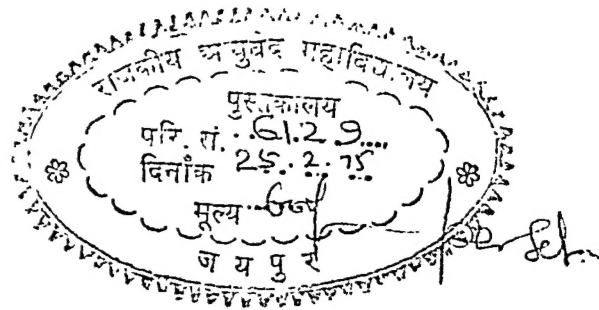 राजकीय आयुर्वेद महाविद्यालय
पुस्तकालय
परि. सं. 6129
दिनाँक 25.2.75
मूल्य
जयपुर